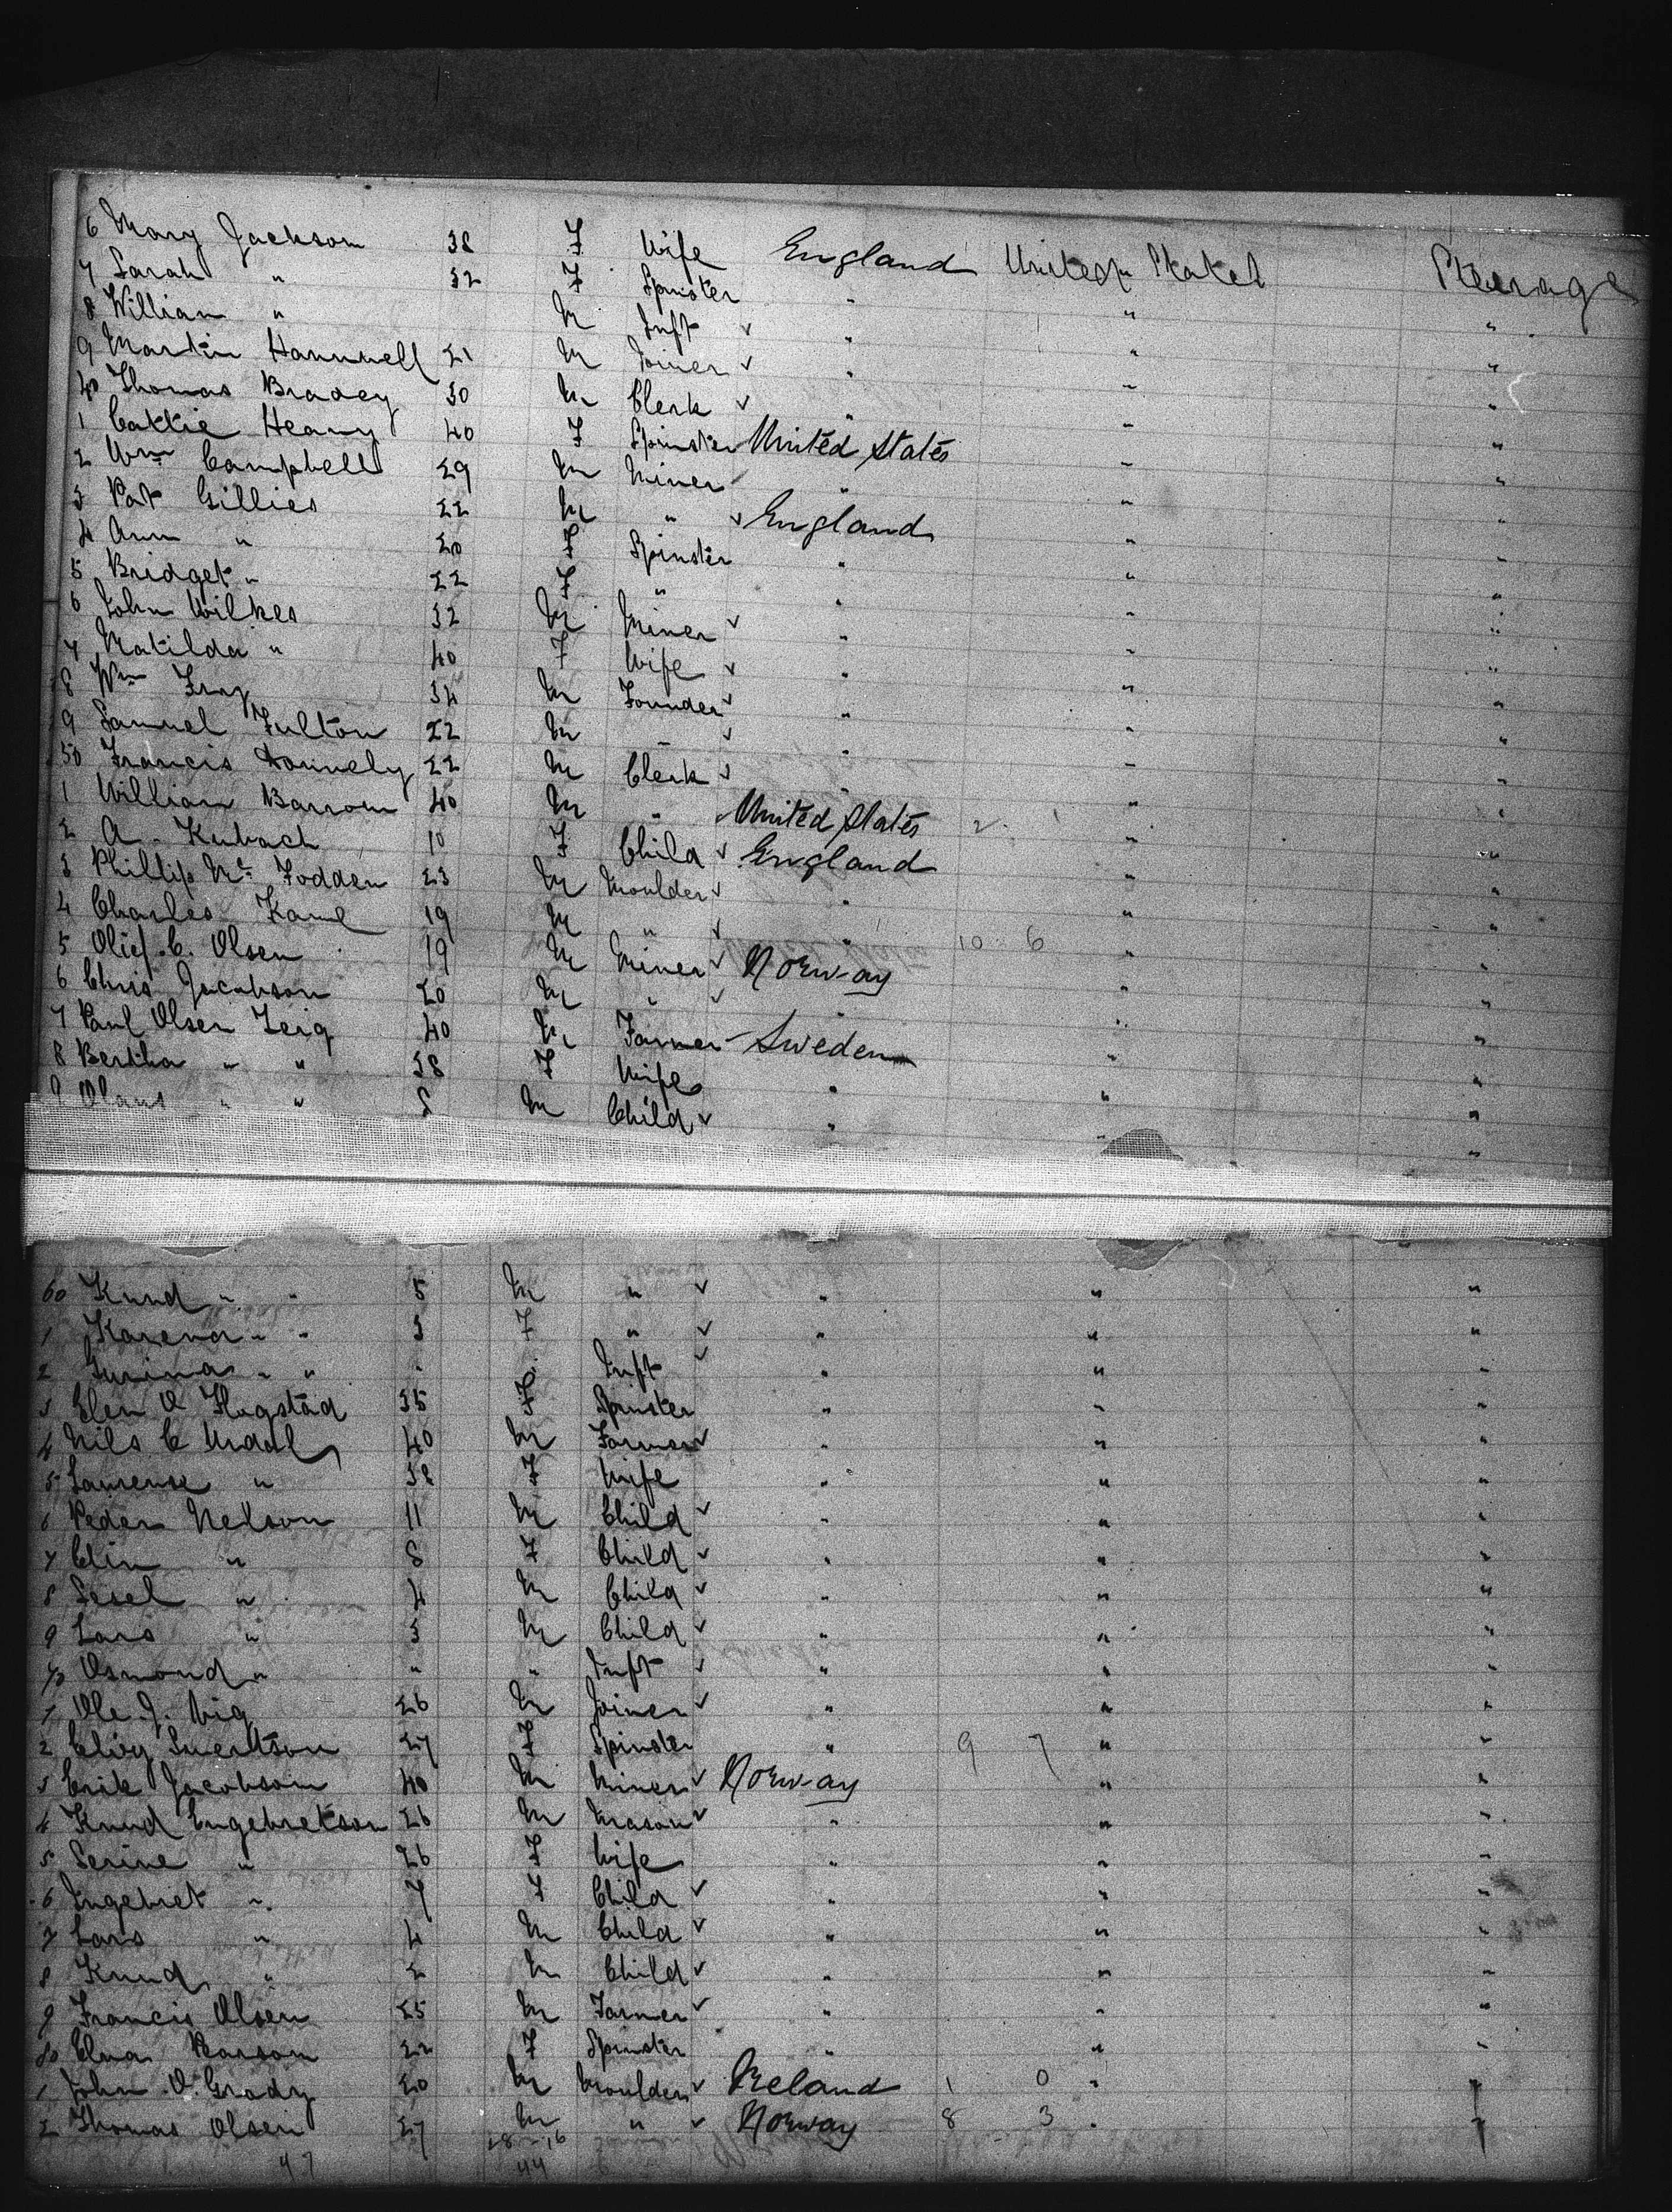 6 Mary Jackson 38 F Wife England United States Steerage
7 Sarah " 32 F Spinster " " "
8 William " M Inft ✓ " " "
9 Martin Hannwell 21 M Joiner ✓ " " "
40 Thomas Bradey 30 M Clerk ✓ " " "
1 Cattie Heany 40 F Spinster United States " "
2 Wm Campbell 29 M Miner " " "
3 Pat Gillies 22 M " ✓ England " "
4 Ann " 20 F Spinster " " "
5 Bridget " 22 F " " " "
6 John Wilkes 32 M Miner ✓ " " "
7 Matilda " 40 F Wife ✓ " " "
8 Wm Fray 34 M Founder ✓ " " "
9 Samuel Fulton 22 M " ✓ " " "
50 Francis Donnely 22 M Clerk ✓ " " "
1 William Barrom 40 M " United States 2 1 " "
2 A. Kubach 10 F Child ✓ England " "
3 Phillip Mc Fodden 23 M Moulder ✓ " " "
4 Charles Kane 19 M " ✓ " 10 6 " "
5 Olief C. Olsen 19 M Miner ✓ Norway " "
6 Chris Jacobson 20 M " ✓ " "
7 Paul Olsen Zeig 40 M Farmer Sweden " "
8 Bertha " " 38 F Wife " " "
9 Olaus " " 8 M Child ✓ " " "
60 Knud " " 5 M " ✓ " " "
1 Karena " " 3 F " ✓ " " "
2 Gurina " " " Inft ✓ " " "
3 Elen O Hogstad 35 F Spinster " " "
4 Nils C Urdal 40 M Farmer ✓ " " "
5 Laurense " 38 F Wife " " "
6 Peder Nelson 11 M Child ✓ " " "
7 Elin " 8 F Child ✓ " " "
8 Sesel " 4 M Child ✓ " " "
9 Lars " 3 M Child ✓ " " "
70 Osmond " " " Inft ✓ " " "
1 Ole J. Vig 26 M Joiner ✓ " " "
2 Eliog Suertson 27 F Spinster " 9 7 " "
3 Erik Jacobson 40 M Miner ✓ Norway " "
4 Knud Engebretson 26 M Mason ✓ " " "
5 Serine " 26 F Wife " " "
6 Ingebret " 7 F Child ✓ " " "
7 Lars " 4 M Child ✓ " " "
8 Knud " 2 M Child ✓ " " "
9 Francis Olsen 25 M Farmer ✓ " " "
80 Elna Parson 22 F Spinster " " "
1 John O. Grady 20 M Moulder ✓ Ireland 1 0 " "
2 Thomas Olsen 27 M " ✓ Norway 8 3 " "
28 16
47 44